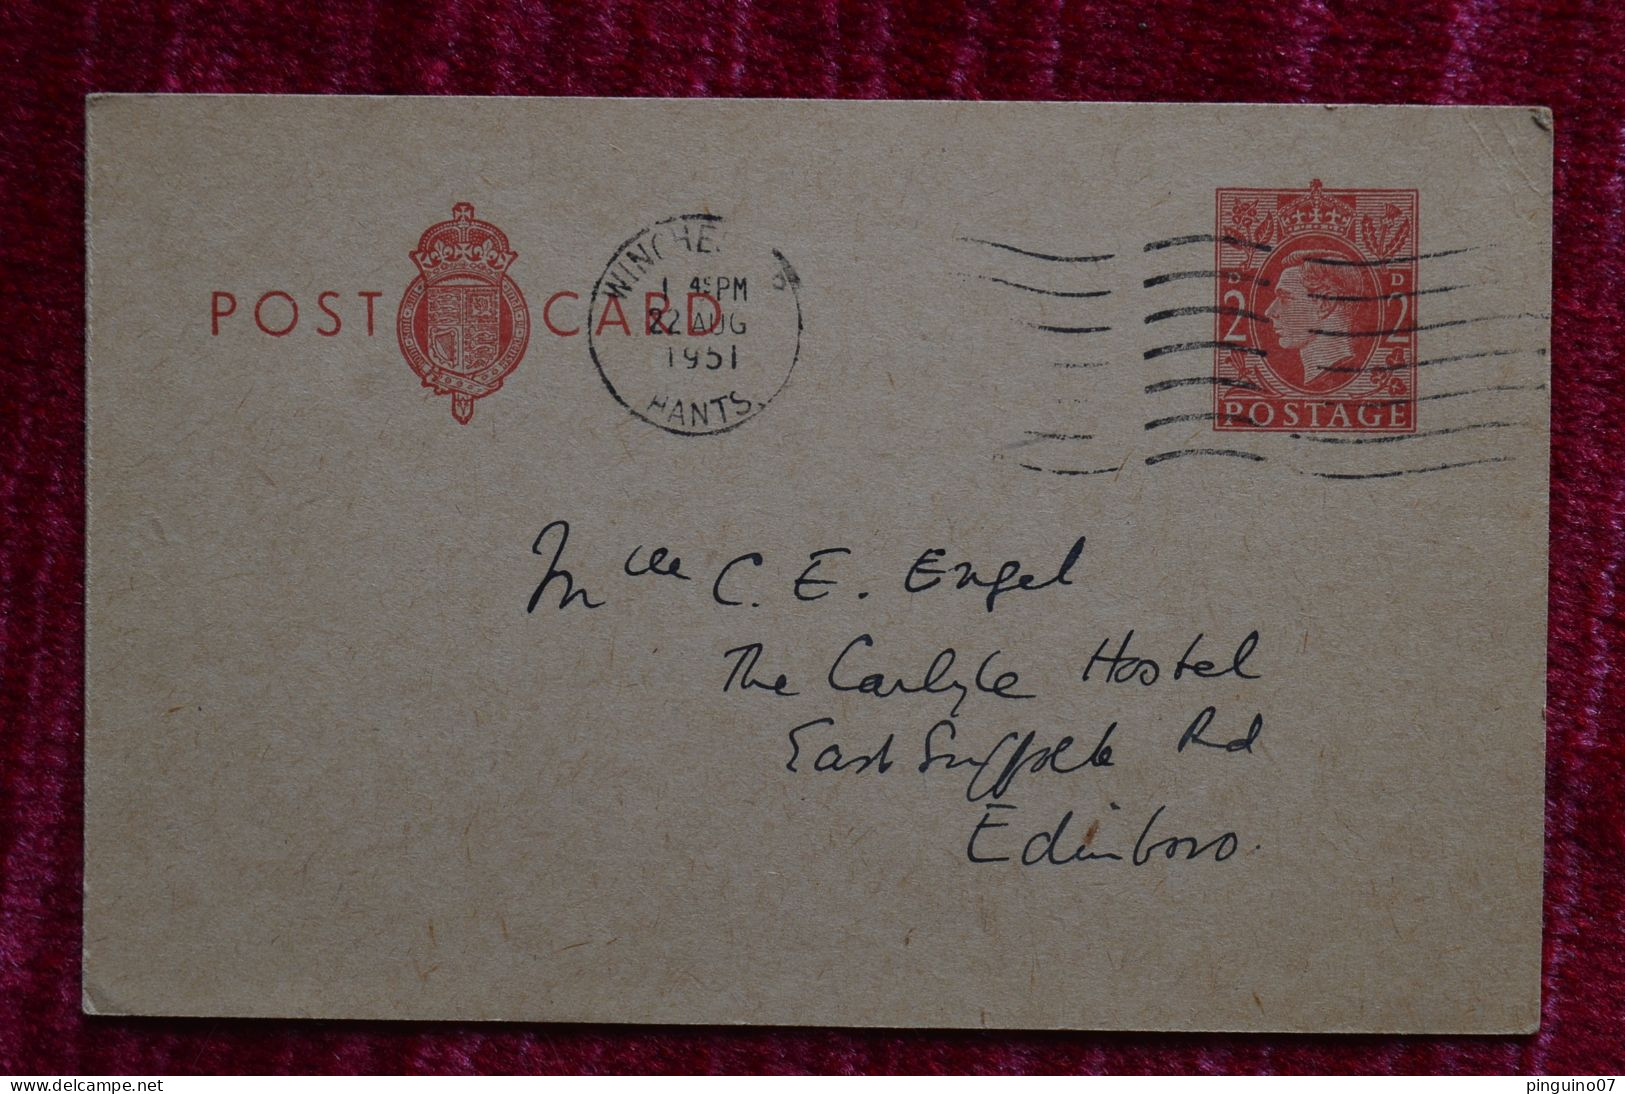 POST CARD
WINCHE
1 45 PM
22 AUG
1951
HANTS.
D D
2 2
POSTAGE
Mlle C. E. Engel
The Carlyle Hostel
East Suffolk Rd
Edinboro.
pinguino07